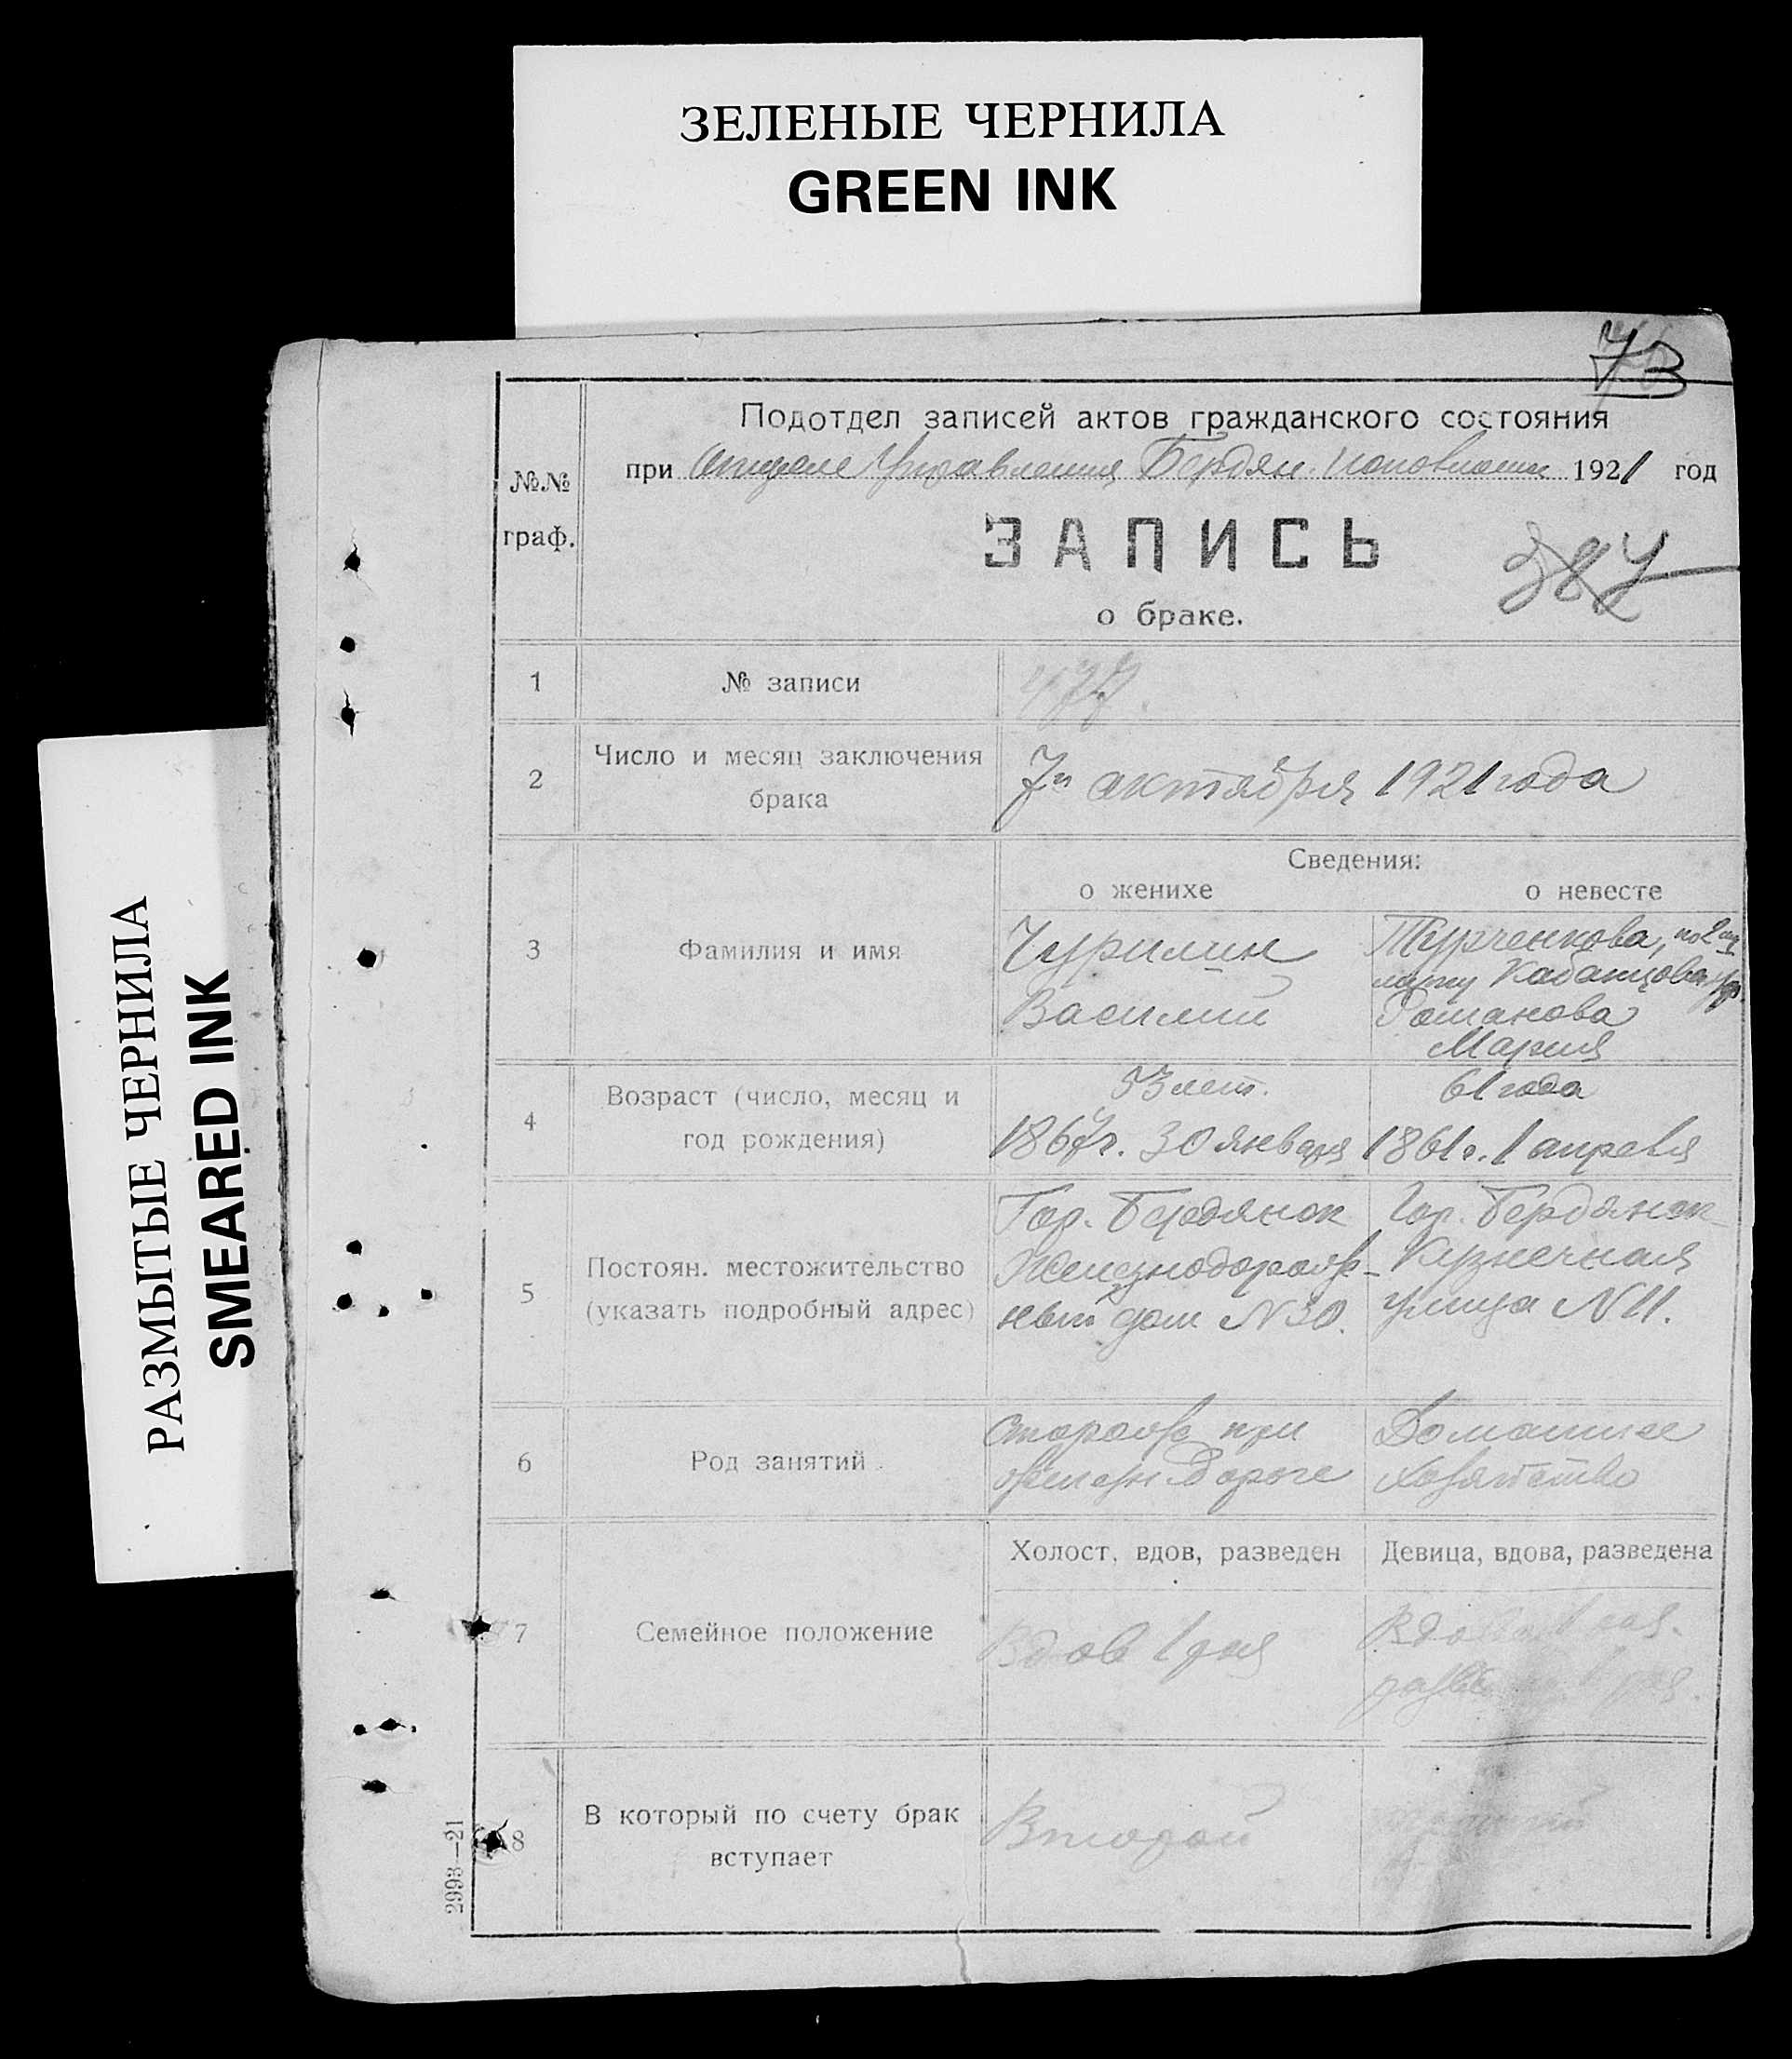 ЗЕЛЕНЫЕ ЧЕРНИЛА
GREEN INK
РАЗМЫТЫЕ ЧЕРНИЛА
SMEARED INK
73
Подотдел записей актов гражданского состояния
при Отделе Управления Бердян. 1921 год
№№
граф.
ЗАПИСЬ
387
о браке.
1 № записи 477.
2 Число и месяц заключения
брака
7го октября 1921 года
Сведения:
о женихе о невесте
3 Фамилия и имя
Чурилин
Василий
Турченкова, по 2му
мужу Кабанцова ур.
Романова
Мария
4 Возраст (число, месяц и
год рождения)
53 лет.
1867г. 30 января
61 года
1861г. 1 апреля
5 Постоян. местожительство
(указать подробный адрес)
Гор. Бердянск
Железнодорож-
ный дом N 30.
Гор. Бердянск
Кузнечная
улица N 11.
6 Род занятий.
Сторож при
желез. дороге
Домашнее
хозяйство
7 Семейное положение
Холост, вдов, разведен
Вдов 1 раз
Девица, вдова, разведена
Вдова 1 раз.
1 раз.
8 В который по счету брак
вступает
Второй
третий
2993—21